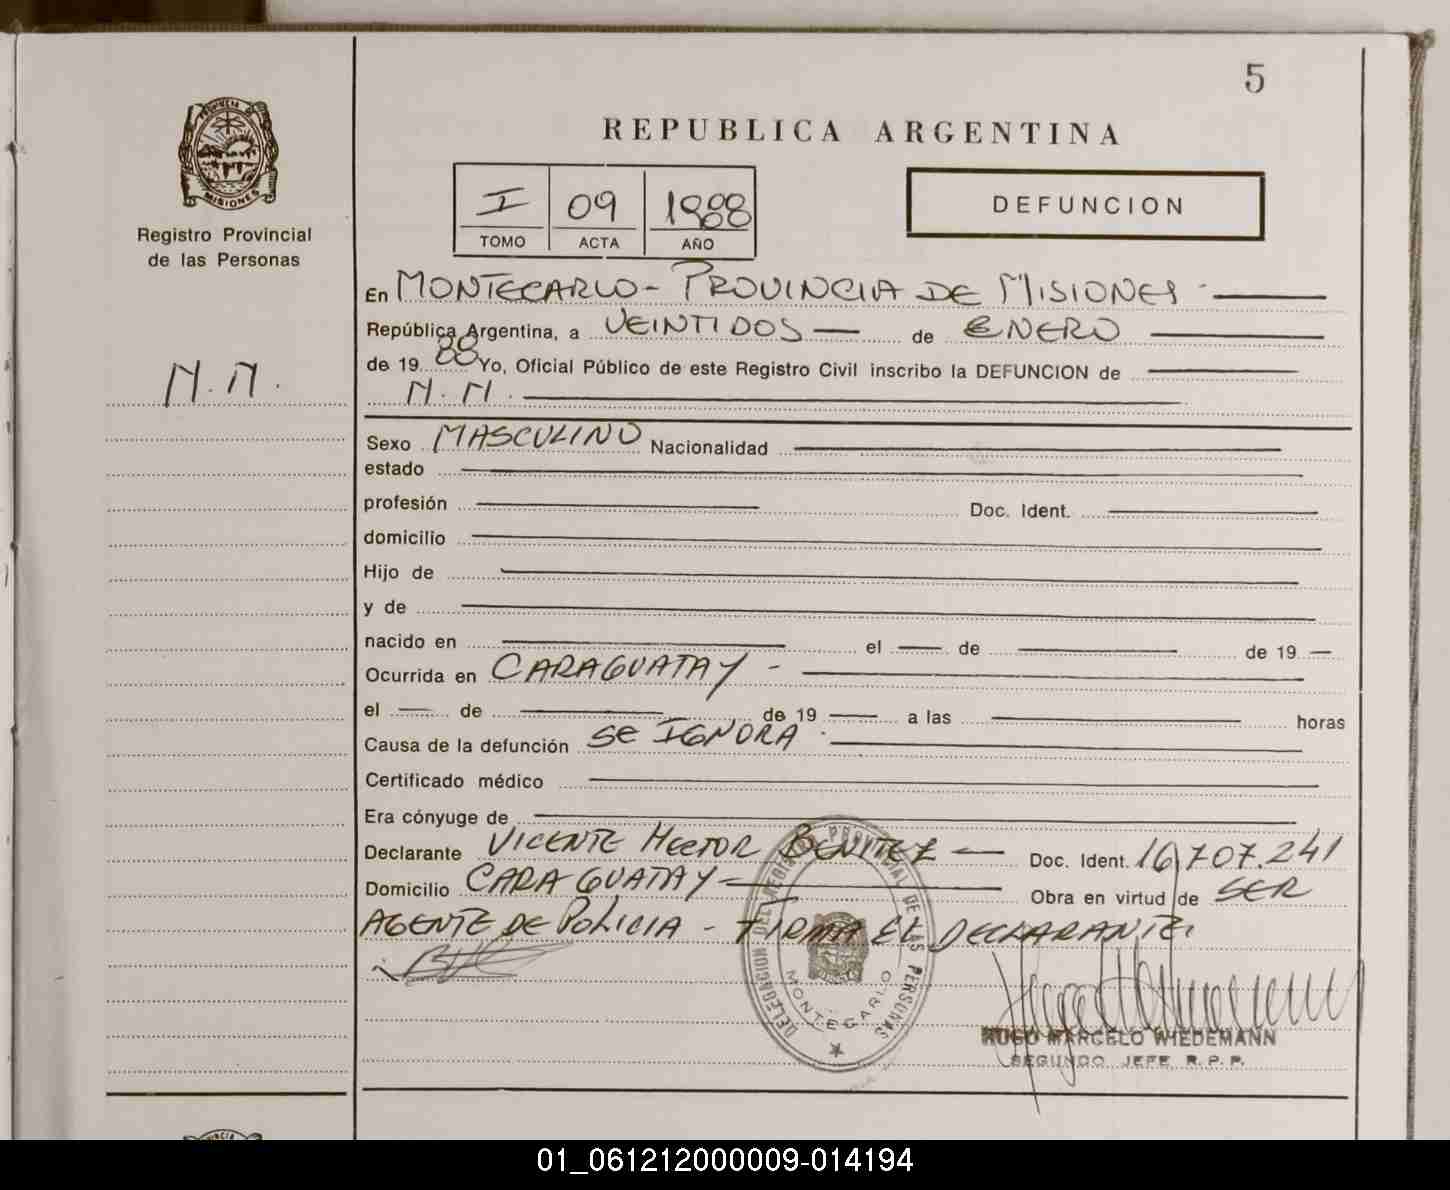 5
PROVINCIA DE
MISIONES
Registro Provincial
de las Personas
N.N.
REPUBLICA ARGENTINA
I 09 1988
TOMO ACTA AÑO
DEFUNCION
En MONTECARLO - PROVINCIA DE MISIONES -
República Argentina, a VEINTIDOS — de ENERO
de 19 88 Yo, Oficial Público de este Registro Civil inscribo la DEFUNCION de
N.N.
Sexo MASCULINO Nacionalidad
estado
profesión Doc. Ident.
domicilio
Hijo de
y de
nacido en el — de — de 19 —
Ocurrida en CARAGUATAY -
el — de — de 19 — a las — horas
Causa de la defunción SE IGNORA.
Certificado médico
Era cónyuge de
Declarante VICENTE HECTOR BENITEZ — Doc. Ident. 16.707.241
Domicilio CARAGUATAY — Obra en virtud de SER
AGENTE DE POLICIA - FIRMA EL DECLARANTE.
DELEGACION DEL REGISTRO PROVINCIAL DE LAS PERSONAS
MONTECARLO
HUGO MARCELO WIEDEMANN
SEGUNDO JEFE R.P.P.
01_061212000009-014194